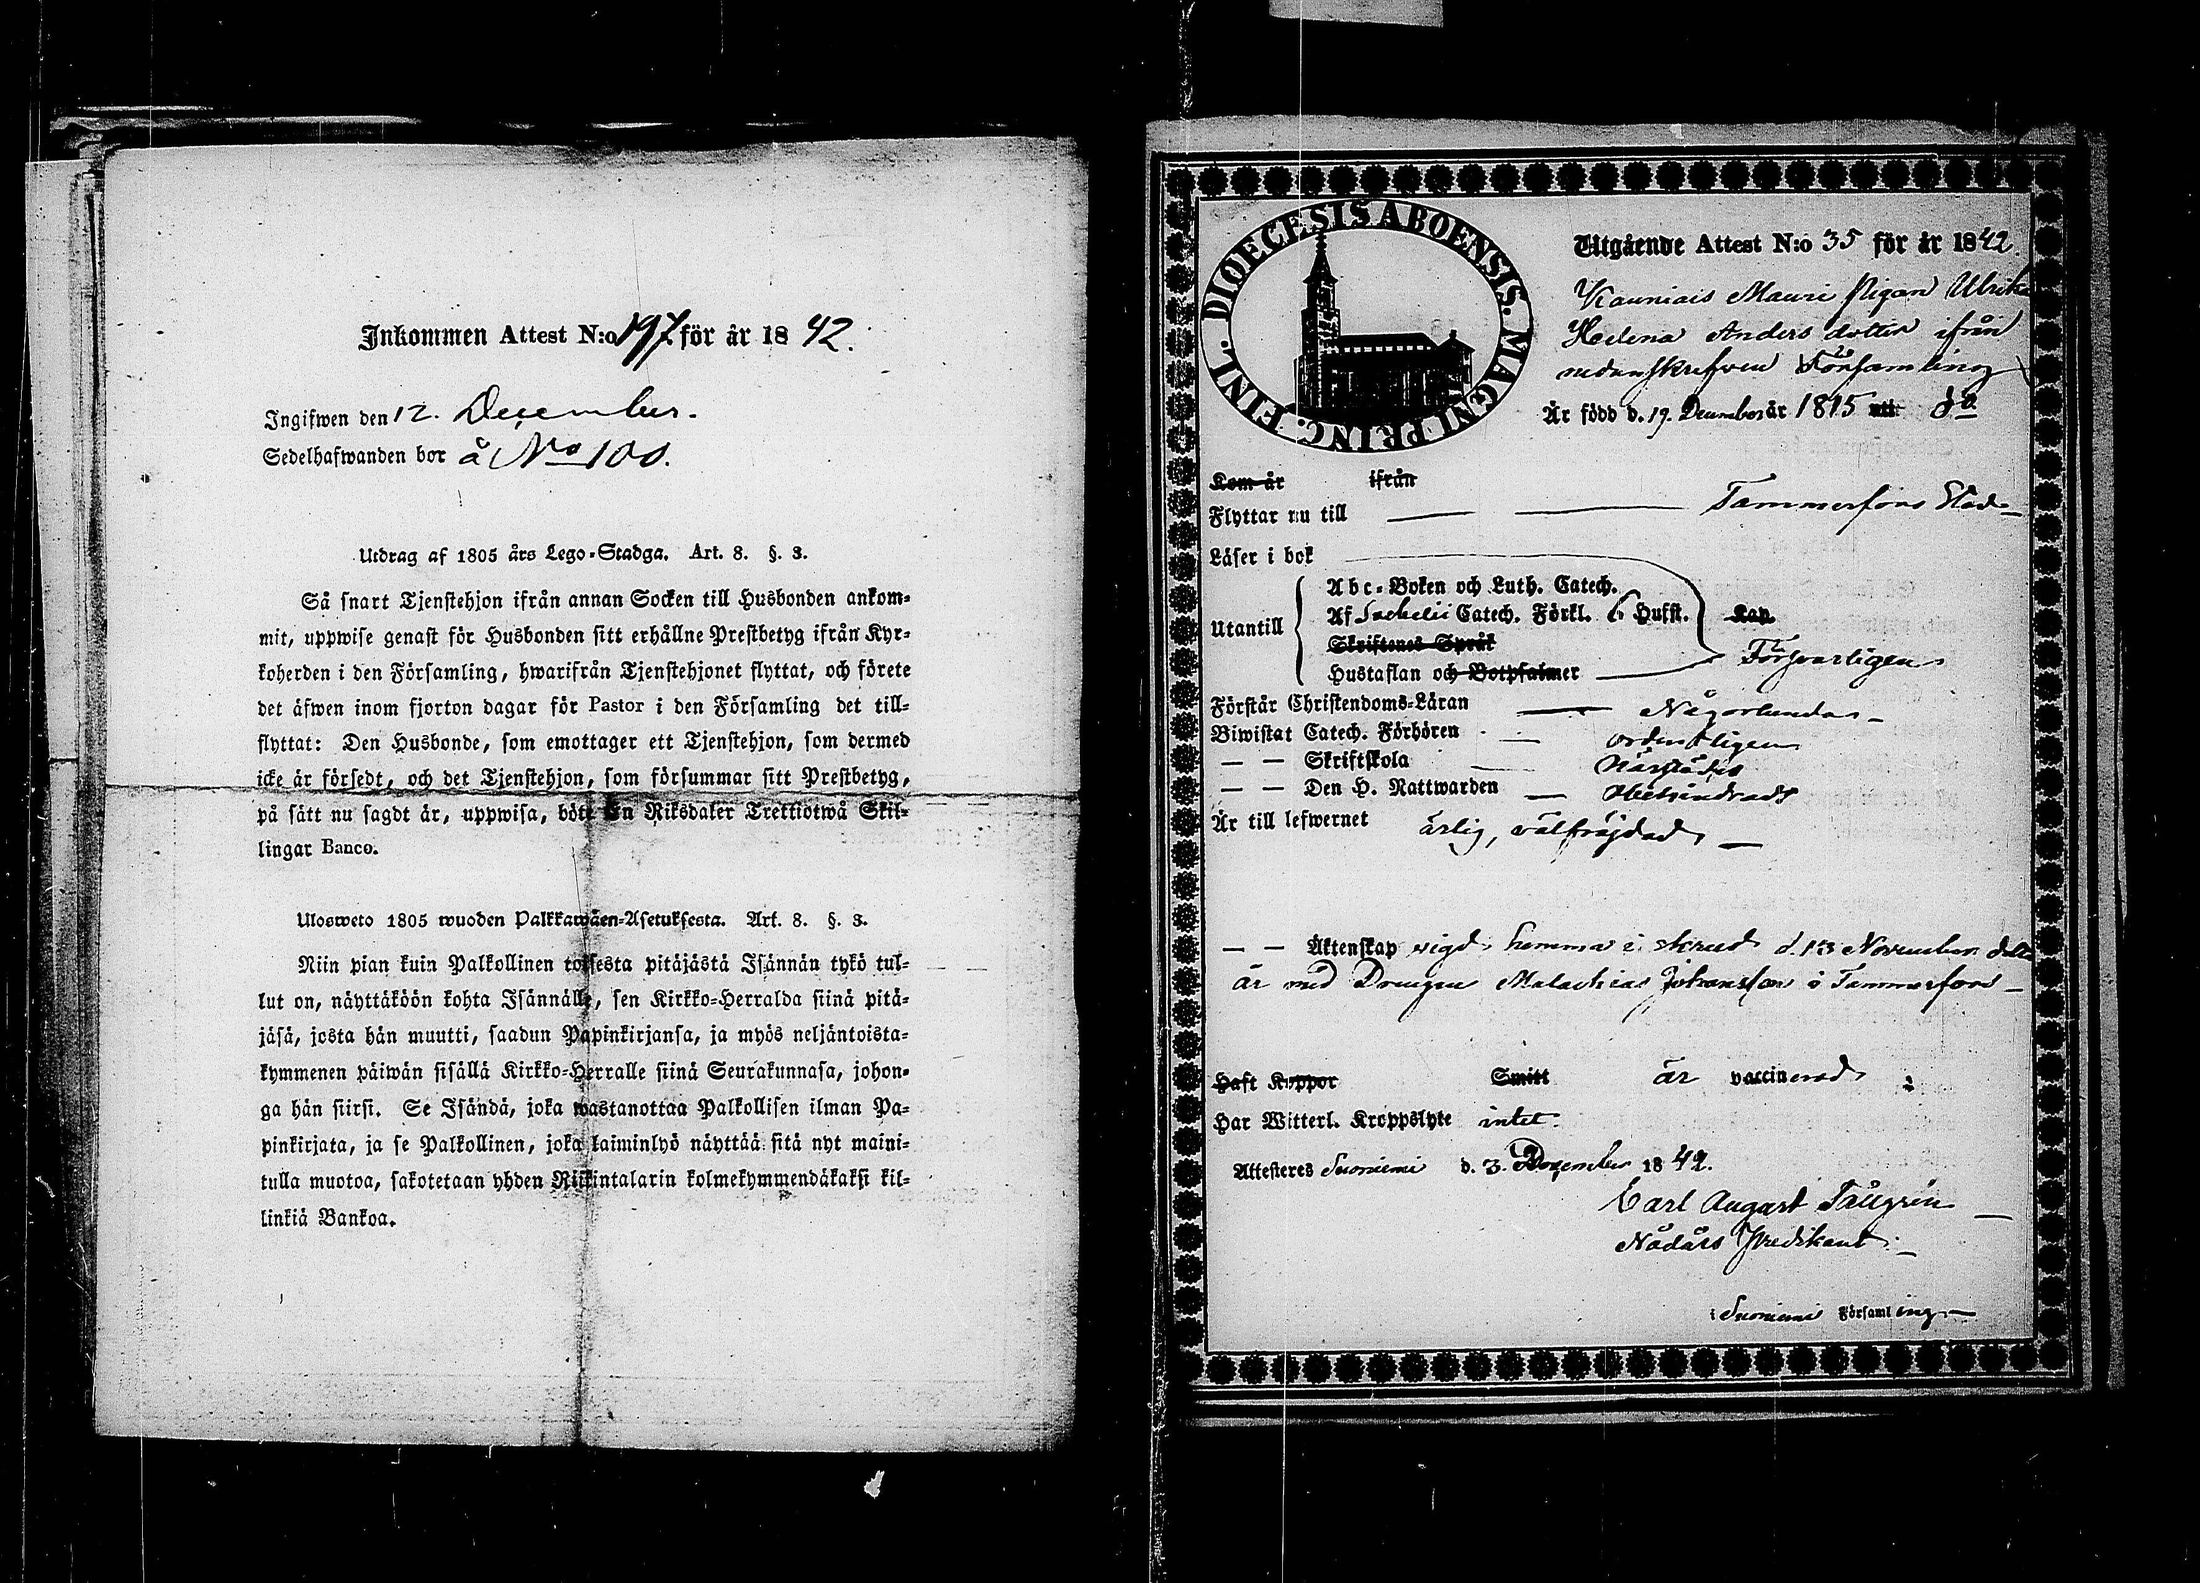 Inkommen Attest N:o 197 för år 1842.
Ingifwen den 12. December.
Sedelhafwanden bor å No 100.
Utdrag af 1805 års Lego-Stadga. Art. 8. §. 3.
Så snart Tjenstehjon ifrån annan Socken till Husbonden ankom-
mit, uppwise genast för Husbonden sitt erhållne Prestbetyg ifrån Kyr-
koherden i den Församling, hwarifrån Tjenstehjonet flyttat, och förete
det äfwen inom fjorton dagar för Pastor i den Församling det till-
flyttat: Den Husbonde, som emottager ett Tjenstehjon, som dermed
icke är försedt, och det Tjenstehjon, som försummar sitt Prestbetyg,
på sätt nu sagdt är, uppwisa, böte En Riksdaler Trettiotwå Skil-
lingar Banco.
Ulosweto 1805 wuoden Palkkawäen-Asetuksesta. Art. 8. §. 3.
Niin pian kuin Palkollinen toisesta pitäjästä Isännän tykö tul-
lut on, näyttäköön kohta Isännälle, sen Kirkko-Herralda siinä pitä-
jäsä, josta hän muutti, saadun Papinkirjansa, ja myös neljäntoista-
kymmenen päiwän sisällä Kirkko-Herralle siinä Seurakunnasa, johon-
ga hän siirsi. Se Isändä, joka wastanottaa Palkollisen ilman Pa-
pinkirjata, ja se Palkollinen, joka laiminlyö näyttää sitä nyt maini-
tulla muotoa, sakotetaan yhden Riikintalarin kolmekymmendäkaksi kil-
linkiä Bankoa.
DIOECESIS ABOENSIS. MAGNI PRINC. FINL.
Utgående Attest N:o 35 för år 1842.
Kauniais Mauri Pigan Ulrika
Helena Anders dotter ifrån
nedanskrefven Församling
Är född d. 19. December år 1815 uti do
Kom år ifrån
Flyttar nu till Tammerfors Stad
Läser i bok
Abc-Boken och Luth. Catech.
Utantill Af Svebelii Catech. Förkl. 6 Hufst. Kap.
Skriftenes Språk
Hustaflan och Botpsalmer Försvarligen
Förstår Christendoms-Läran Någorlunda
Biwistat Catech. Förhören ordentligen
— — Skriftskola
— — Den H. Nattwarden Obehindrad
Är till lefwernet ärlig, välfräjdad
— — Äktenskap vigd hemma i skrud d. 13 November detta
år med Drängen Malachias Johansson i Tammerfors
Haft Koppor Smitt är vaccinerad
Har Witterl. Kroppslyte intet.
Attesteres Suoniemi d. 3. December 1842.
Carl August
Nådårs Predikant.
i Suoniemi Församling